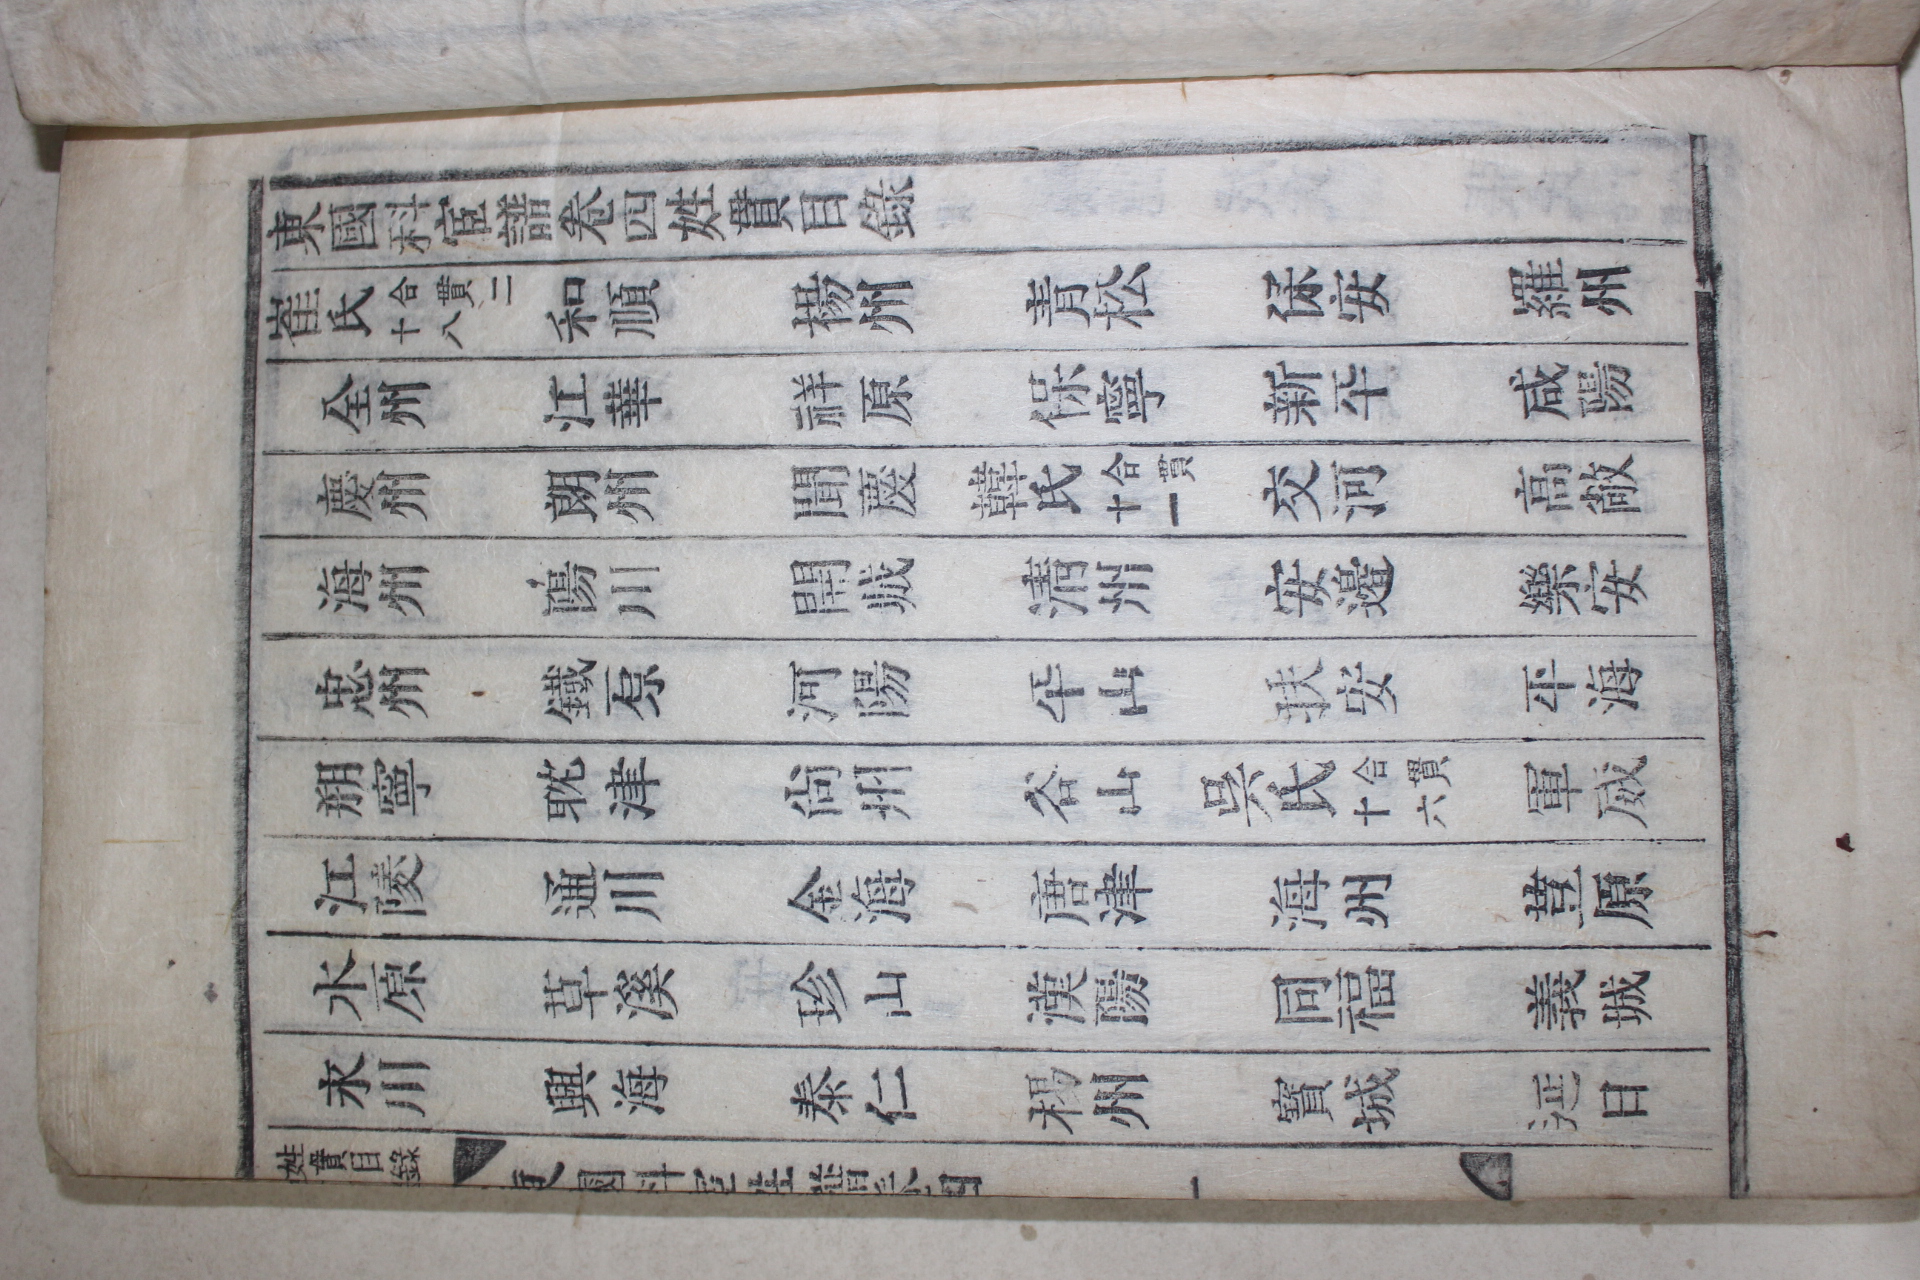 東國科宦譜卷四姓貫目錄
崔氏 合貫二十八 和順 楊州 青松 保安 羅州
全州 江華 祥原 保寧 新平 咸陽
慶州 朗州 聞慶 韓氏 合貫十一 交河 高敞
海州 陽川 開城 淸州 安邊 樂安
忠州 鐵原 河陽 平山 扶安 平海
朔寧 耽津 尙州 谷山 吳氏 合貫十六 軍威
江陵 通川 金海 唐津 海州 荳原
水原 草溪 珍山 漢陽 同福 義城
永川 興海 泰仁 楊州 寶城 延日
姓貫目錄
東國科宦姓譜卷四
一